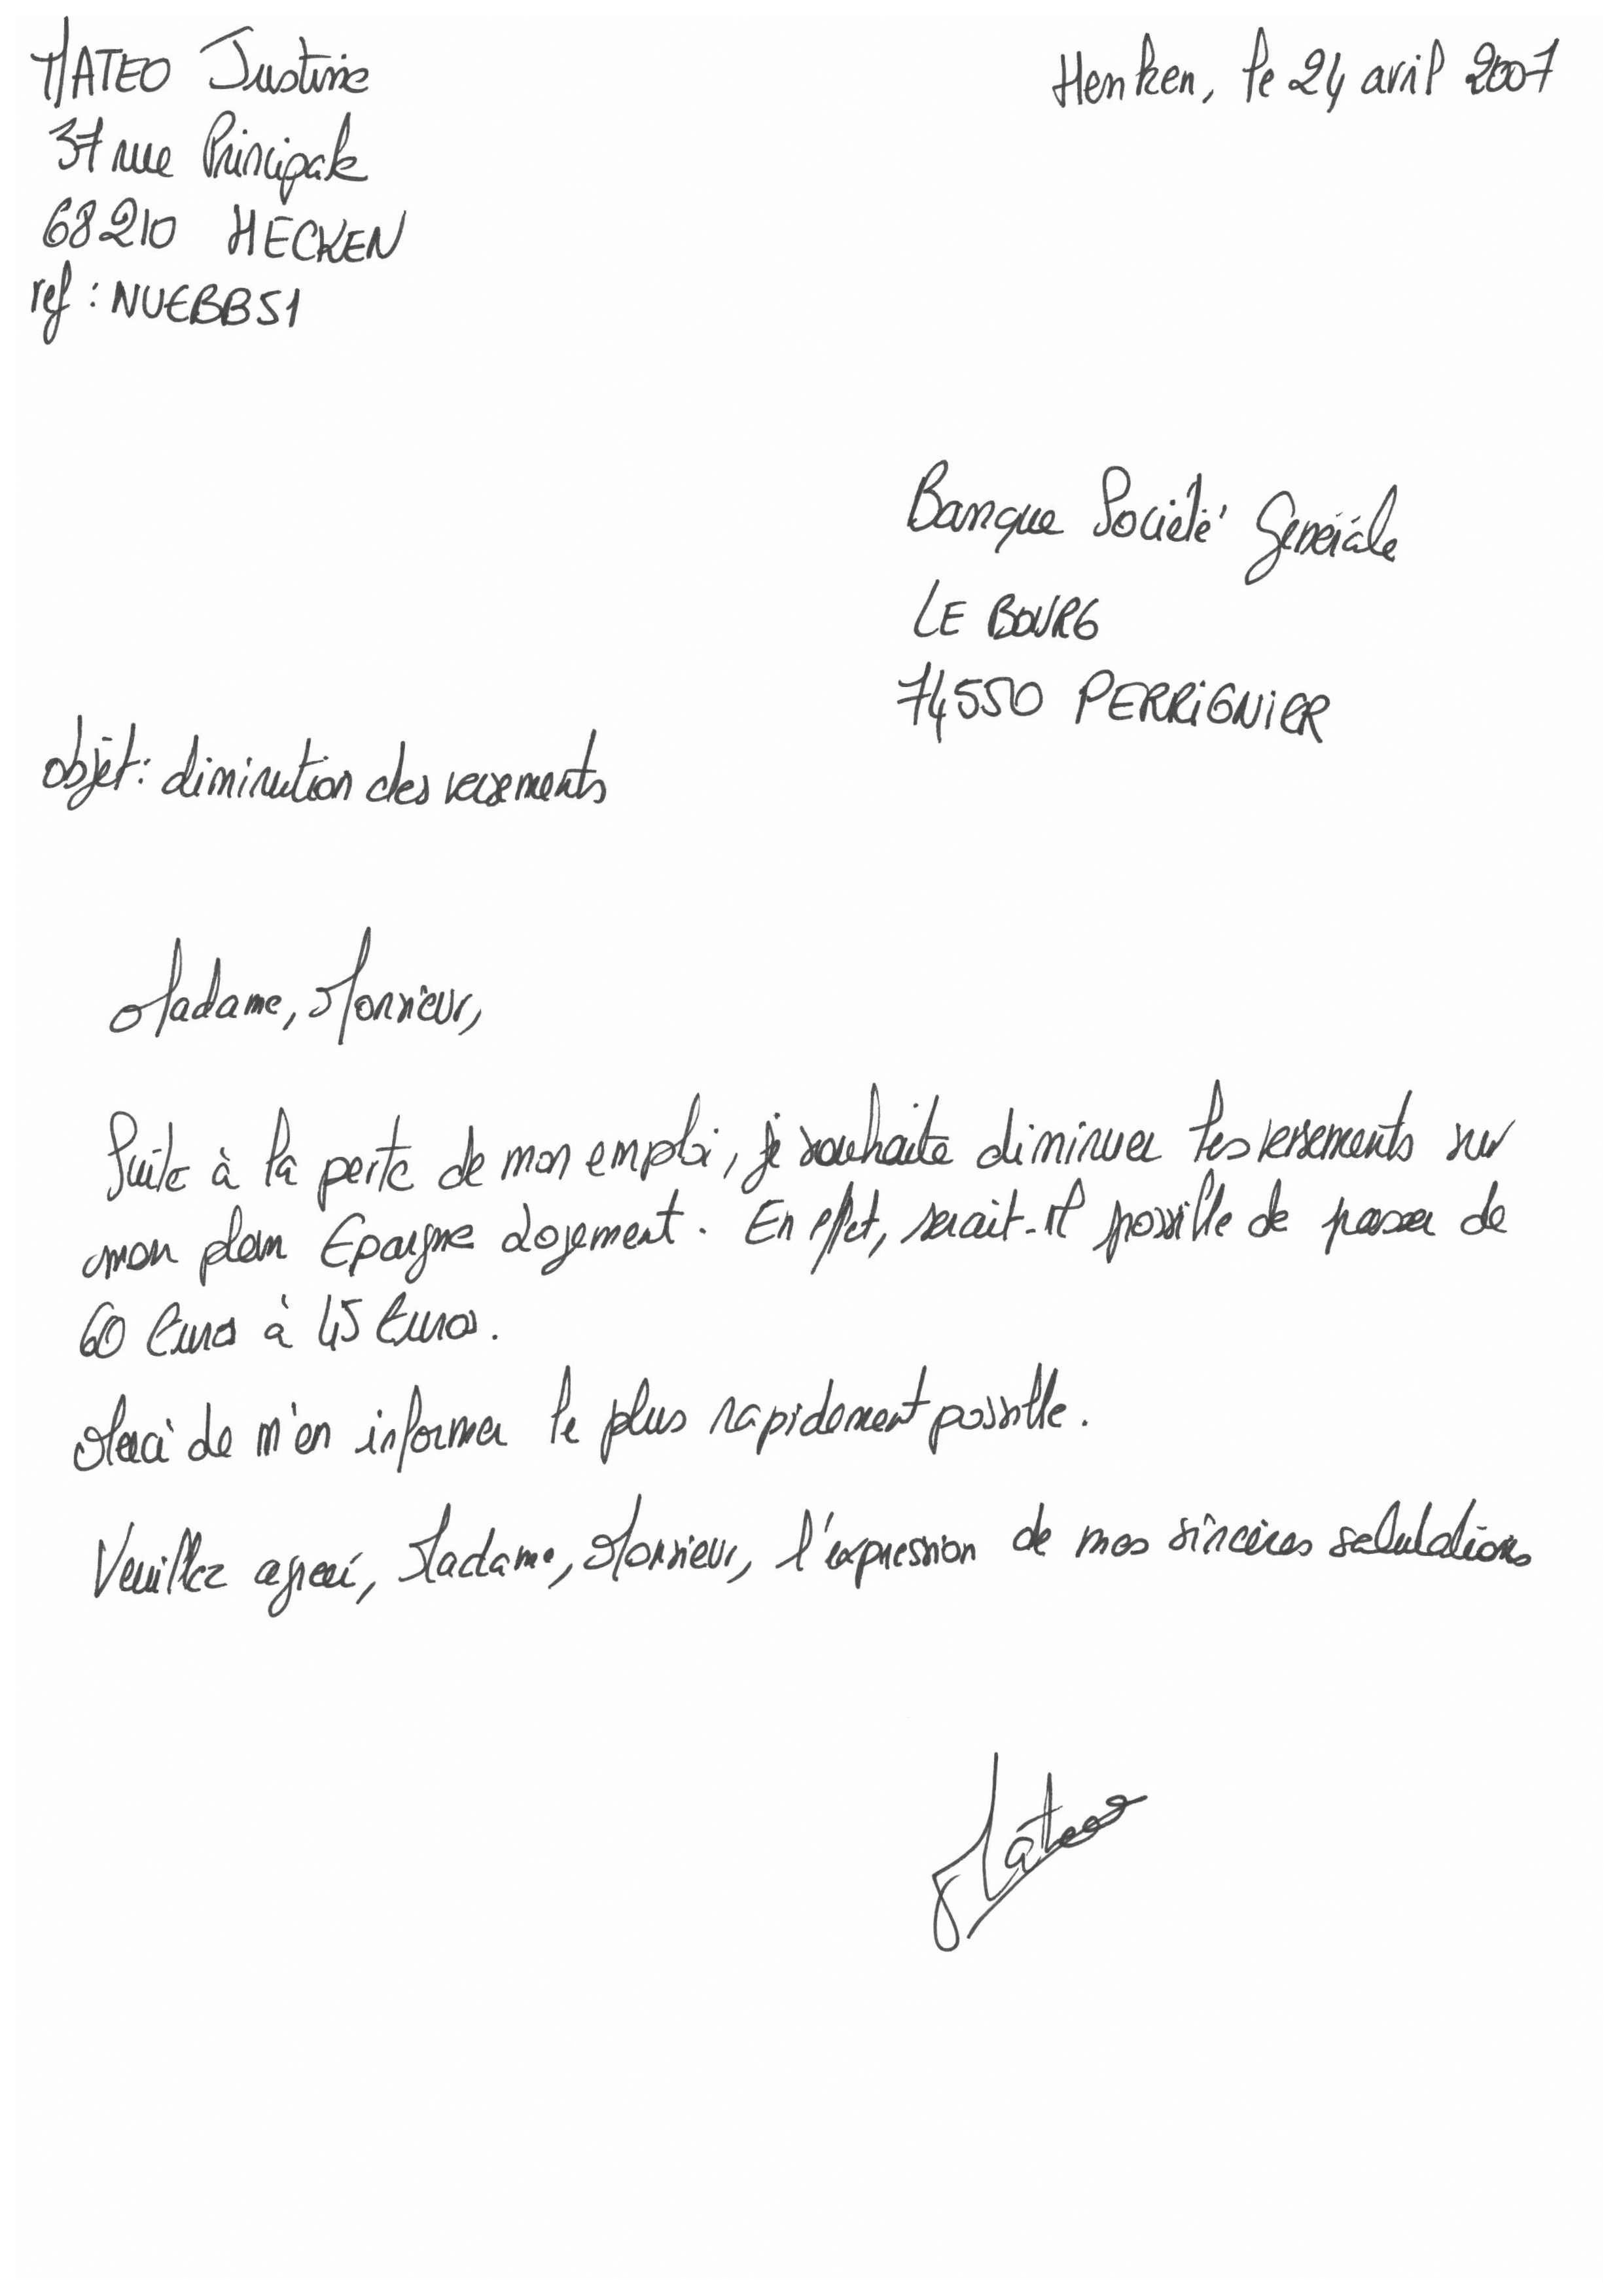 MATEO Justine
37 rue Principale
68210 HECKEN
ref : NUEBB51
Henken, le 24 avril 2007
Banque Société Générale
LE BOURG
74550 PERRIGNIER
objet : diminution des versements
Madame, Monsieur,
Suite à la perte de mon emploi, je souhaite diminuer les versements sur
mon plan Epargne Logement. En effet, serait-il possible de passer de
60 Euros à 45 Euros.
Merci de m'en informer le plus rapidement possible.
Veuillez agréer, Madame, Monsieur, l'expression de mes sincères salutations
Mateo